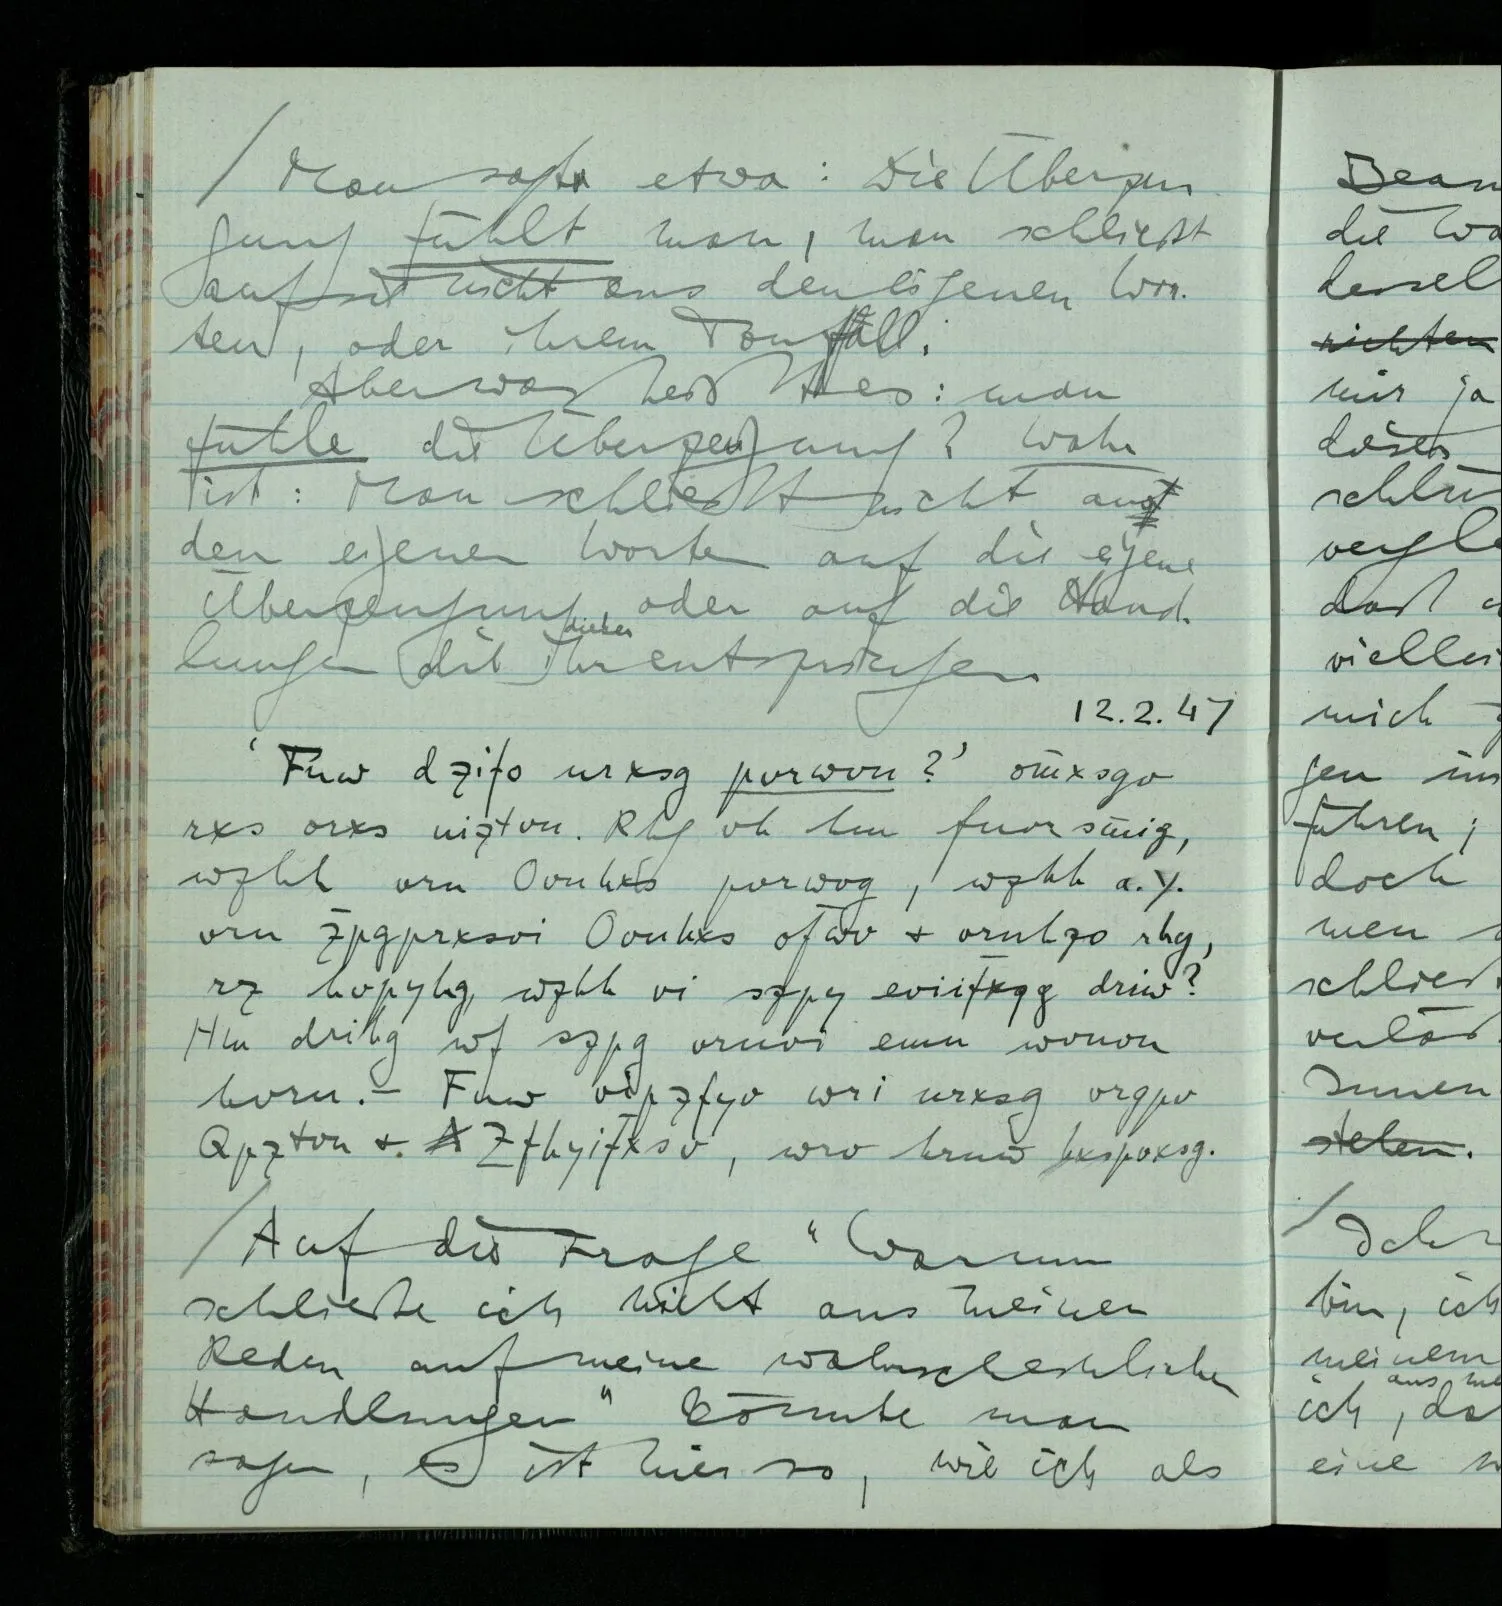 / Man sagte etwa: Die Überzeu-
gung fühlt man, man schließt
auf sie nicht aus den eigenen Wor-
ten, oder ihrem Tonfall.
Aber was heißt es: man
fühle die Überzeugung? Wahr
ist: Man schließt nicht aus
den eigenen Worten auf die eigene
Überzeugung, oder auf die Hand-
dieser
lungen die ihr entspringen.
12.2.47
'Fnw dzifo nrxsg pvrwvn?' om̈xsgv
rxs orxs uiztvn. Rhg vh hm fnvism̈ig,
wzhh vrn Ovnhxs pvrwvg, wzhh a.y.
vrn z̈pgprxsvi Ovnhxs of̈wv + vrnhzo rhg,
rz hvpyhg, wzhh vi szpy eviif̈xqg driw?
Hm drihg wf szpg vrnvi emn wvnvn
hvrn. – Fnw vipzfyv wri nrxsg vrgpv
Qpztvn + Zfhyif̈xsv, wrv hrnw hxspvxsg.
/ Auf die Frage "Warum
schließe ich nicht aus meinen
Reden auf meine wahrscheinlichen
Handlungen" könnte man
sagen, es ist hier so, wie ich als
die
dessel
nichten
mir ja
dieses
schlie
vergle
daß
viellei
mich
gen
führen;
doch
men
schließ
Innen
stehen.
/ Ich
bin, ich
meinem
aus me
ich, da
eine